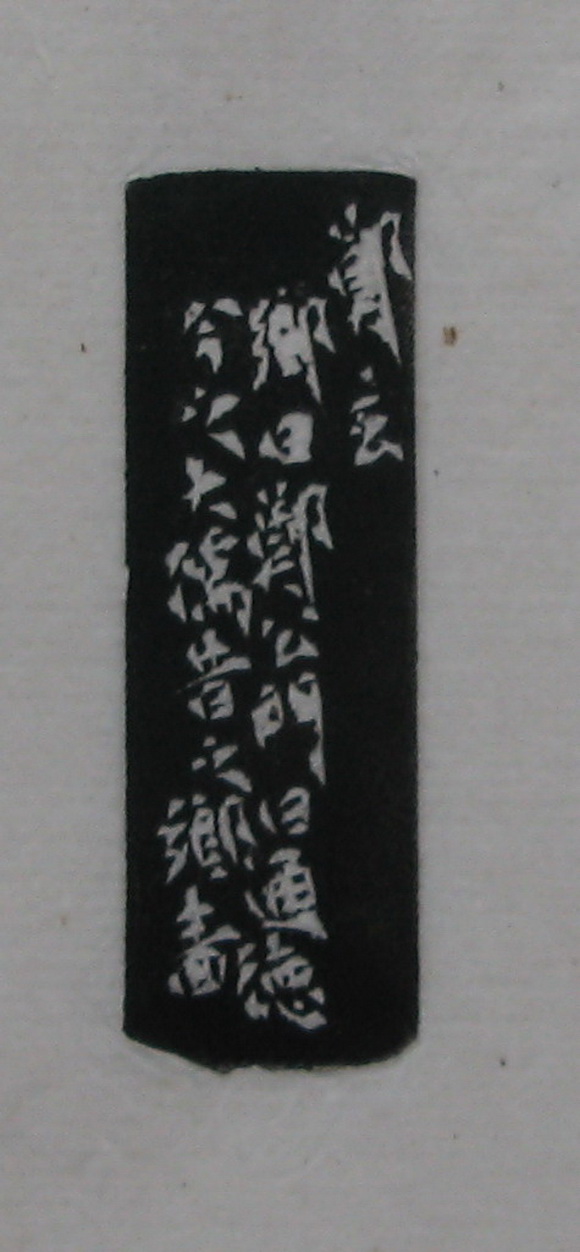 鄭玄
鄉曰鄭公門曰通德
今之大儒昔之鄉嗇